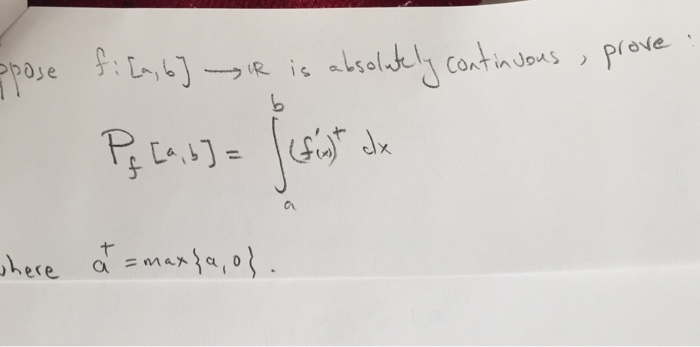 ppose f: [a,b] → ℝ is absolutely continuous, prove :
P_f [a,b] = ∫_a^b (f'(x))^+ dx
where a^+ = max{a,0}.